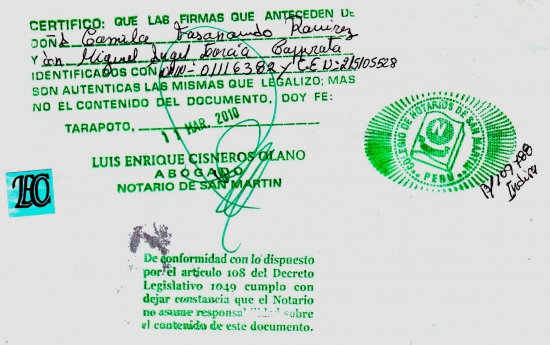 CERTIFICO: QUE LAS FIRMAS QUE ANTECEDEN DE
DOÑA Camila Fasanando Ramirez
Y Don Miguel Angel Garcia
IDENTIFICADOS CON DNI-01116382 / C.E.N-
SON AUTENTICAS LAS MISMAS QUE LEGALIZO; MAS
NO EL CONTENIDO DEL DOCUMENTO, DOY FE:
TARAPOTO, 11 MAR. 2010
LUIS ENRIQUE CISNEROS OLANO
ABOGADO
NOTARIO DE SAN MARTIN
COLEGIO DE NOTARIOS DE SAN MARTIN
PERU
De conformidad con lo dispuesto
por el artículo 108 del Decreto
Legislativo 1049 cumplo con
dejar constancia que el Notario
no asume responsabilidad sobre
el contenido de este documento.